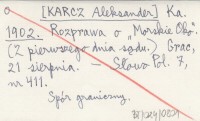 [KARCZ Aleksander] Ka.
1902. Rozprawa o „Morskie Oko".
(Z pierwszego dnia sądu.) Grac,
21 sierpnia. — Słowo Pol. 7,
nr 411.
Spór graniczny.